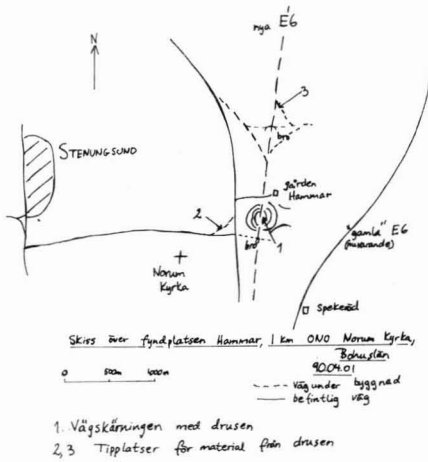 nya E6
N
3
bro
STENUNGSUND
gården
Hammar
2
"gamla" E6
(nuvarande)
bro
1
Norum
Kyrka
Spekeröd
Skiss över fyndplatsen Hammar, 1 km ONO Norum Kyrka,
Bohuslän
90.04.01
0 500m 1000m
väg under byggnad
befintlig väg
1. Vägskärningen med drusen
2,3 Tipplatser för material från drusen